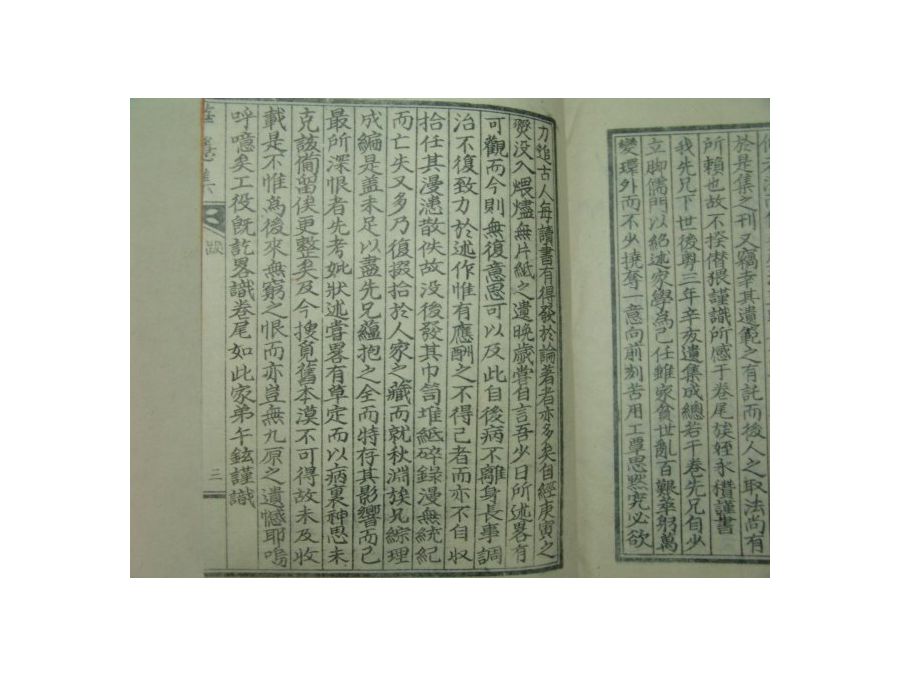 於是集之刊又竊幸其遺範之有託而後人之取法尚有
所賴也故不揆僭猥謹識所感于卷尾族姪永穳謹書
我先兄下世後粤三年辛亥遺集成總若干卷先兄自少
立脚儒門以紹述家學為己任雖家貧世亂百艱萃躬萬
變環外而不少撓奪一意向前刻苦用工覃思熟究必欲
力追古人每讀書有得發於論著者亦多矣自經庚寅之
燹没入煨燼無片紙之遺晚歲嘗自言吾少日所述畧有
可觀而今則無復意思可以及此自後病不離身長事調
治不復致力於述作惟有應酬之不得已者而亦不自収
拾任其漫漶散佚故没後發其巾笥堆紙碎錄漫無統紀
而亡失又多乃復掇拾於人家之藏而就秋淵族兄綜理
成編是盖未足以盡先兄蘊抱之全而特存其影響而已
最所深恨者先考妣狀述嘗畧有草定而以病裏神思未
克該備留俟更整矣及今搜覓舊本漠不可得故未及收
載是不惟為後來無窮之恨而亦豈無九原之遺憾耶嗚
呼噫矣工役旣訖畧識卷尾如此家弟午鉉謹識
跋
三